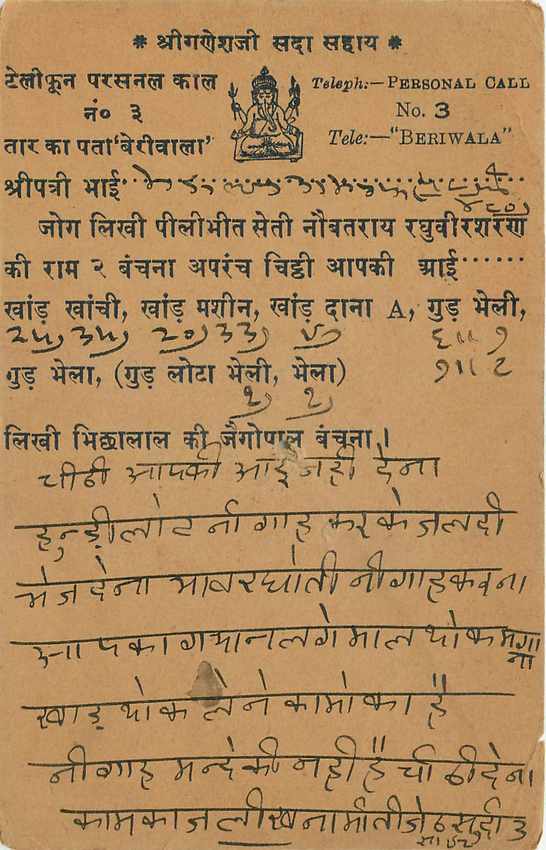 * श्रीगणेशजी सदा सहाय *
टेलीफून परसनल काल
नं० ३
तार का पता 'बेरीवाला'
Teleph:—PERSONAL CALL
No. 3
Tele:—"BERIWALA"
श्रीपत्री भाई
जोग लिखी पीलीभीत सेती नौबतराय रघुवीरशरण
की राम २ बंचना अपरंच चिट्ठी आपकी आई······
खांड़ खांची, खांड़ मशीन, खांड़ दाना A, गुड़ भेली,
गुड़ भेला, (गुड़ लोटा भेली, भेला)
लिखी भिक्खालाल की जैगोपाल बंचना।
चीठी आपकी आइ नही देना
हुन्ड़ी लोट नीगाह करके जलदी
भेज देना भाव रघोती नीगाह
आपका गयान लगे माल थोक मगाना
खाड़ थोक लेने का मोका है
नीगाह मन्दे की नही है चीठी देना
काम काज लीखना मीती जेठ सुदी ३